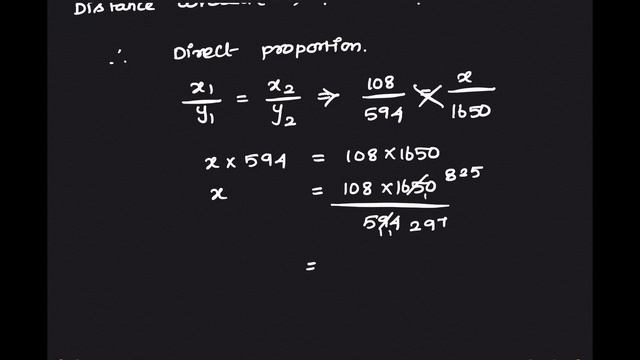 Distance
∴ Direct proportion.
x₁/y₁ = x₂/y₂ ⇒ 108/594 = x/1650
x × 594 = 108 × 1650
x = 108 × 1650 825
594 297
=